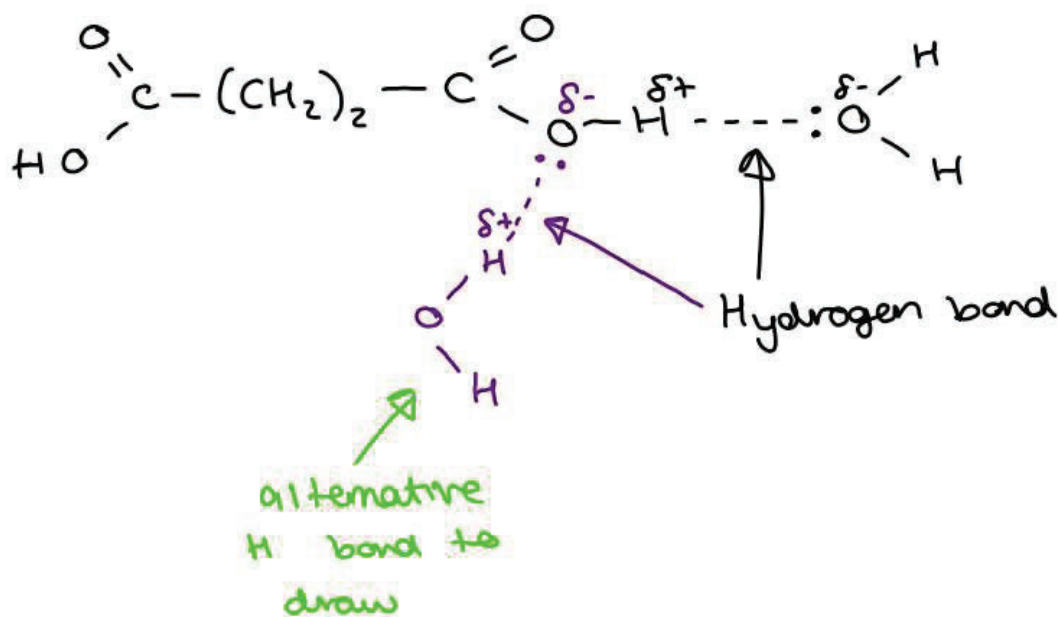 O O
C – (CH₂)₂ – C
HO
δ- δ+ δ-
O – H ----- :O
H
H
δ+
H
O
H
Hydrogen bond
alternative
H bond to
draw